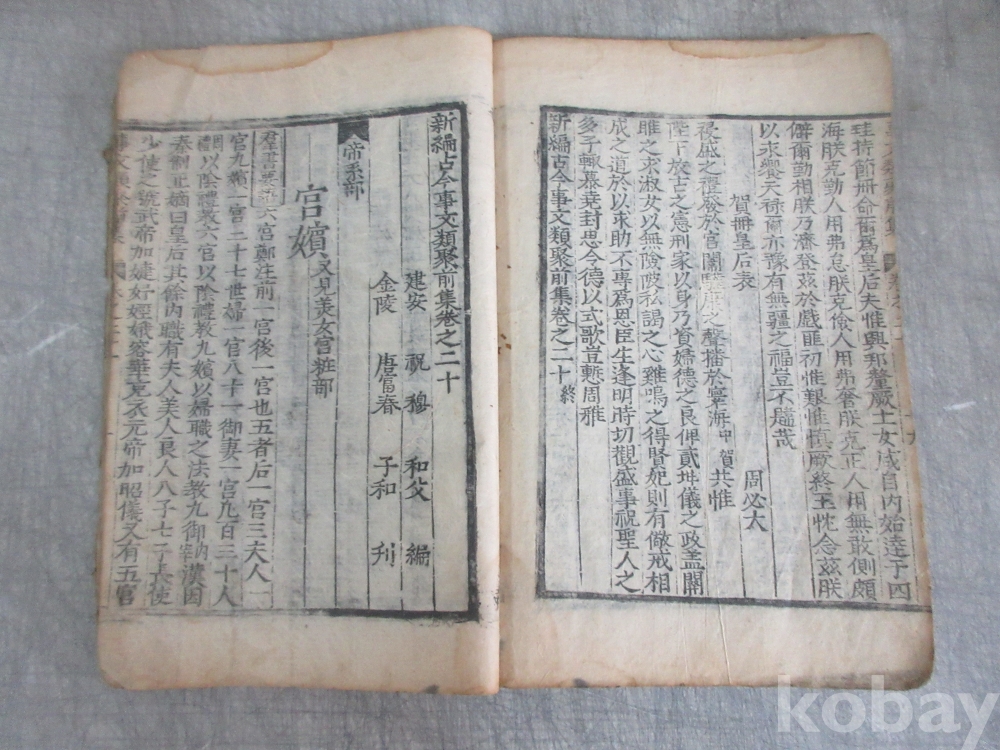 珪持節冊命爾爲皇后夫惟興邦釐厥士女咸自內始達于四
海朕克勤人用弗怠朕克儉人用弗奢朕克正人用無敢側頗
僻爾勤相朕乃濟登茲於戲匪初惟艱惟愼厥終王忱念茲朕
以求饗天祿爾亦豫有無疆之福豈不韙哉
賀冊皇后表
周必大
禮盛之禮發於宮闈驩康之聲播於寧海中賀共惟
陛下放古之憲刑家以身乃資婦德之良俾貳坤儀之政蓋關
雎之求淑女以無險陂私謁之心雞鳴之得賢妃則有儆戒相
成之道於以求助不專爲恩臣生逢明時切觀盛事祝聖人之
多子輒慕堯封思今德以式歌豈慙周雅
新編古今事文類聚前集卷之二十終
新編古今事文類聚前集卷之二十
建安 祝穆 和父 編
金陵 唐富春 子和 刊
帝系部
宮嬪又見美女宮粧部
羣書要語六宮鄭注前一宮後一宮也五者后一宮三夫人一
宮九嬪一宮二十七世婦一宮八十一御妻一宮九百三十人
以陰禮敎六宮以陰禮敎九嬪以婦職之法敎九御內宰漢因
秦制正嫡曰皇后其餘內職有夫人美人良人八子七子長使
少使之號武帝加婕妤娙娥容華充衣元帝加昭儀又有五官
kobay